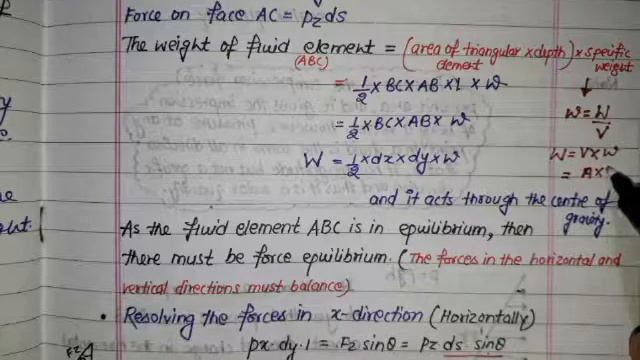 Force on face AC = pz ds
The weight of fluid element (ABC) = (area of triangular element × depth) × specific weight
= 1/2 × BC × AB × 1 × w
w = W/V
= 1/2 × BC × AB × w
W = V × w
W = 1/2 × dx × dy × w
= A ×
and it acts through the centre of gravity.
As the fluid element ABC is in equilibrium, then
there must be force equilibrium. (The forces in the horizontal and
vertical directions must balance)
• Resolving the forces in x-direction (Horizontally)
px·dy·1 = Fz sinθ = pz ds sinθ